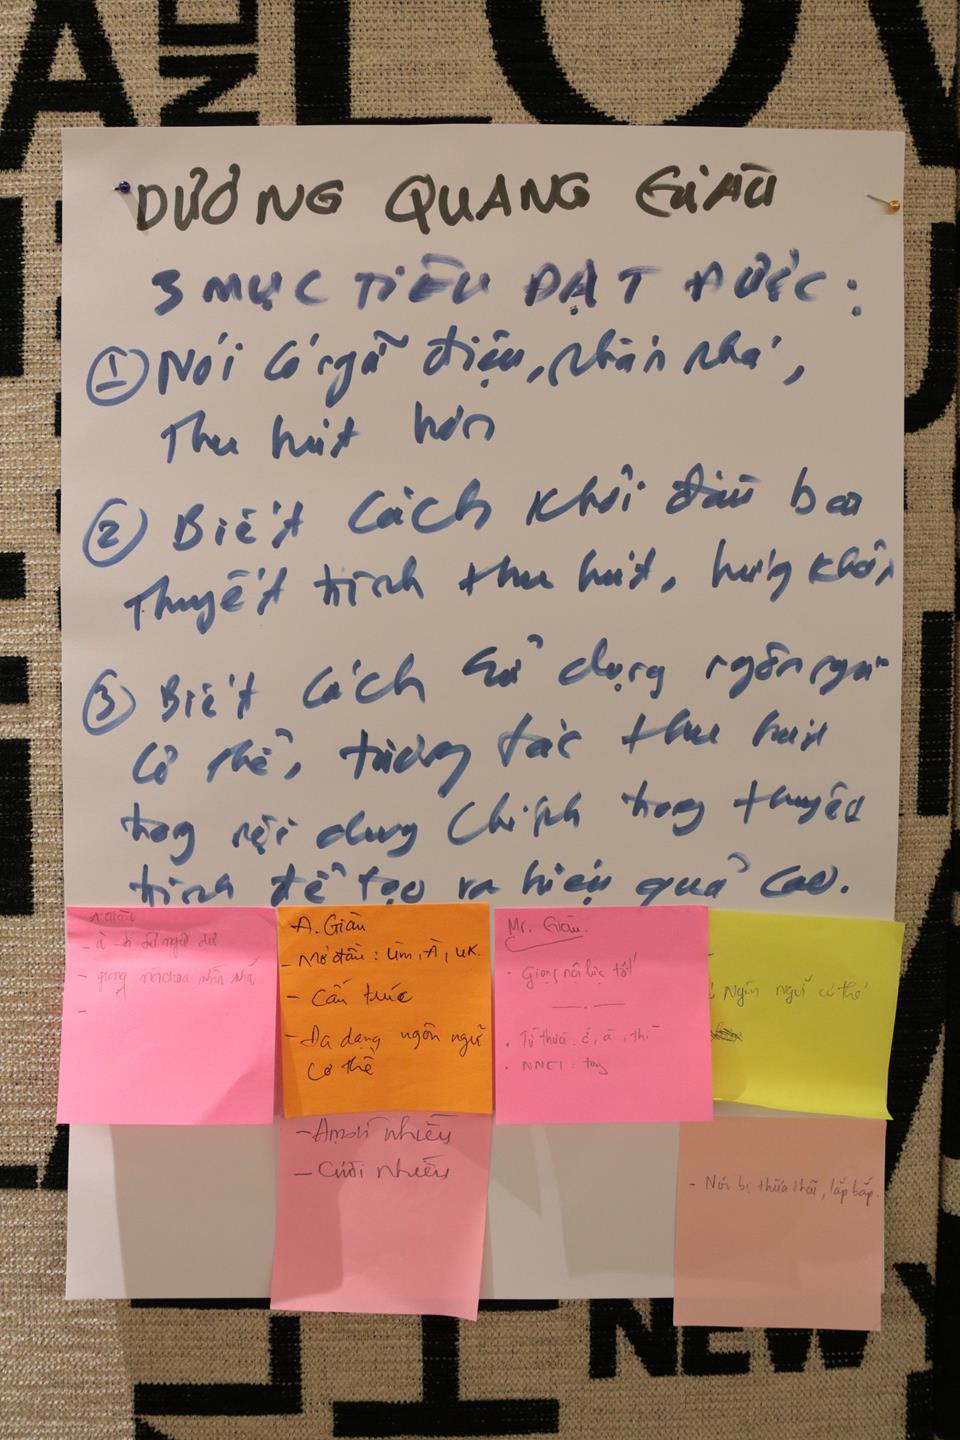 DƯƠNG QUANG GIÀU
3 MỤC TIÊU ĐẠT ĐƯỢC:
① Nói có ngữ điệu, nhấn nhá,
Thu hút hơn
② Biết cách khởi đầu bài
thuyết trình thu hút, hứng khởi
③ Biết cách sử dụng ngôn ngữ
cơ thể, tương tác thu hút
trong nội dung chính trong thuyết
trình để tạo ra hiệu quả cao.
A. Giàu
- giọng nói chưa nhấn nhá
-
A. Giàu
- Mở đầu: Ừm, À, UK.
- Cấu trúc
- Đa dạng ngôn ngữ
cơ thể
Mr. Giàu.
. Giọng nội lực tốt
. Từ thừa: è, à, thì
. NNCT: tay
Ngôn ngữ cơ thể
- Ậm ờ nhiều
- Cười nhiều
- Nói bị thừa thãi, lắp bắp.
NEW